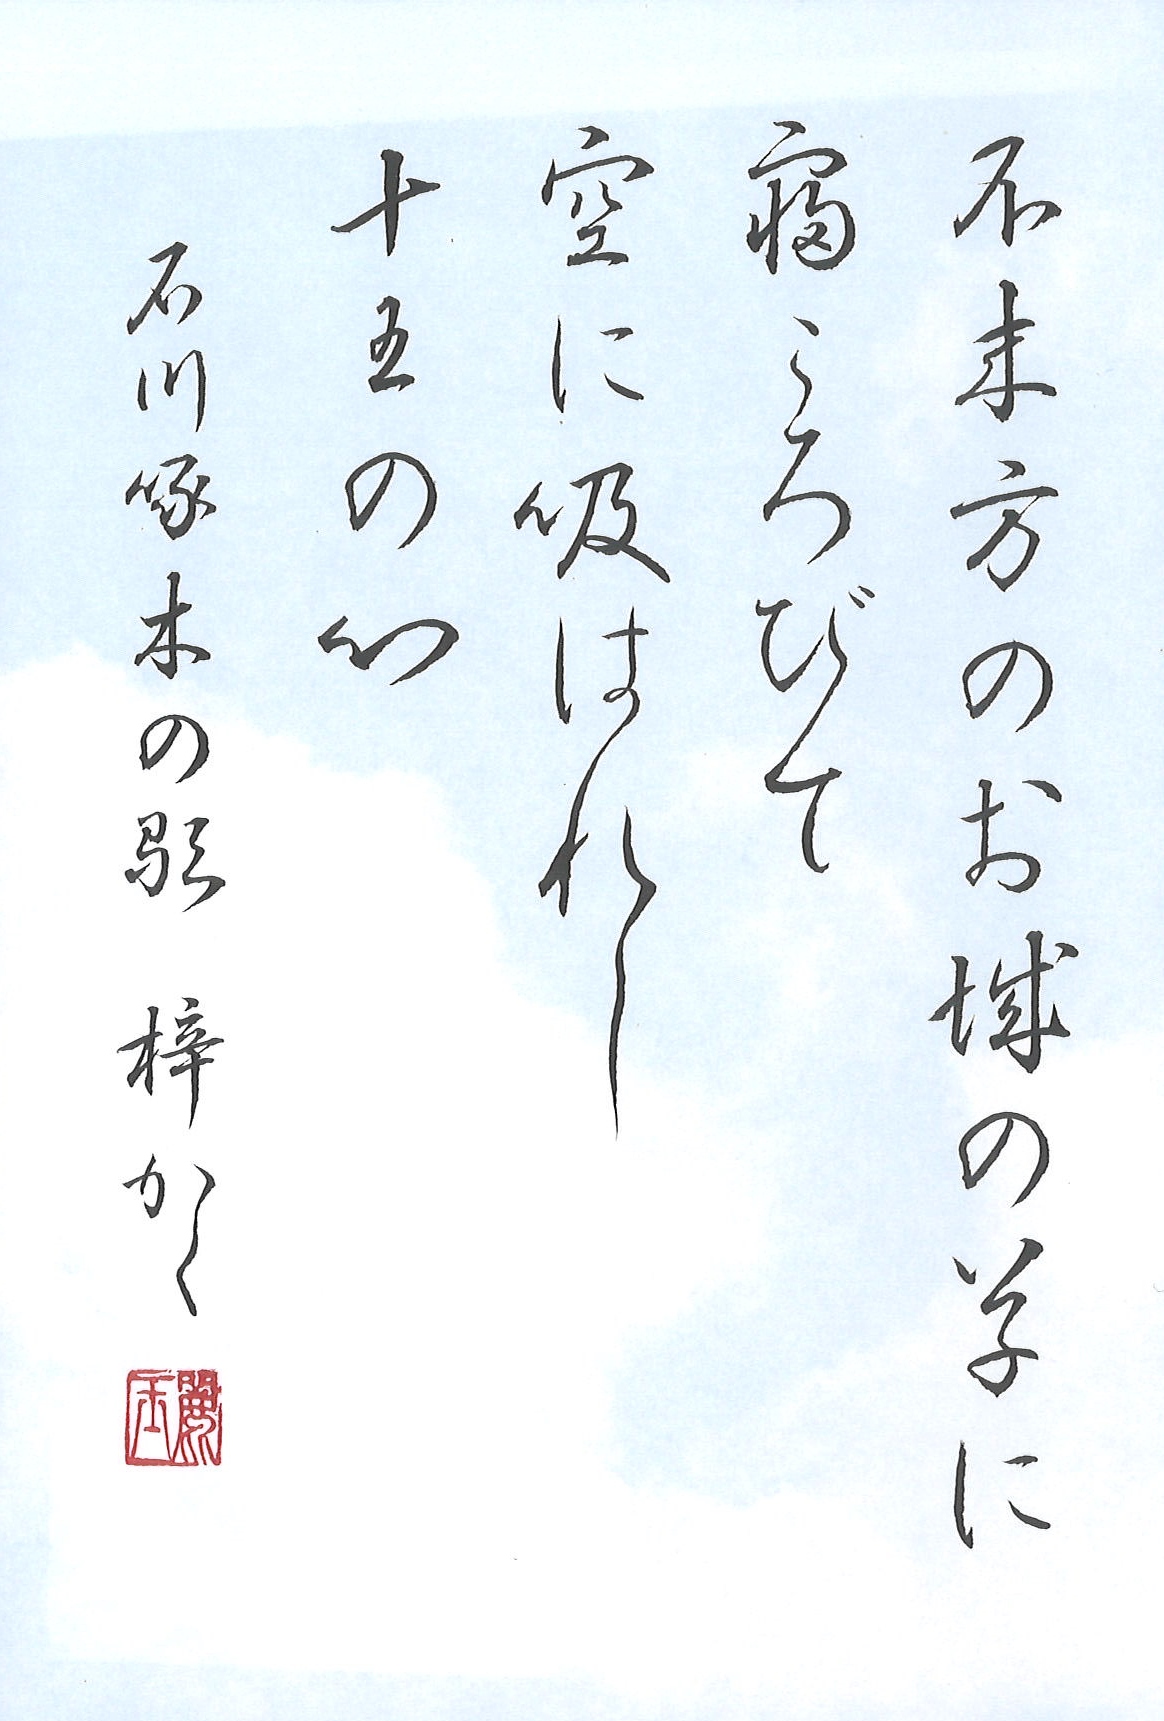 不来方のお城の草に
寝ころびて
空に吸はれし
十五の心
石川啄木の歌 梓かく